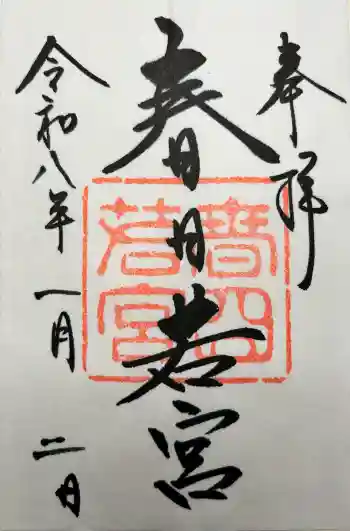 奉拝
春日若宮
春日
若宮
令和八年一月二日